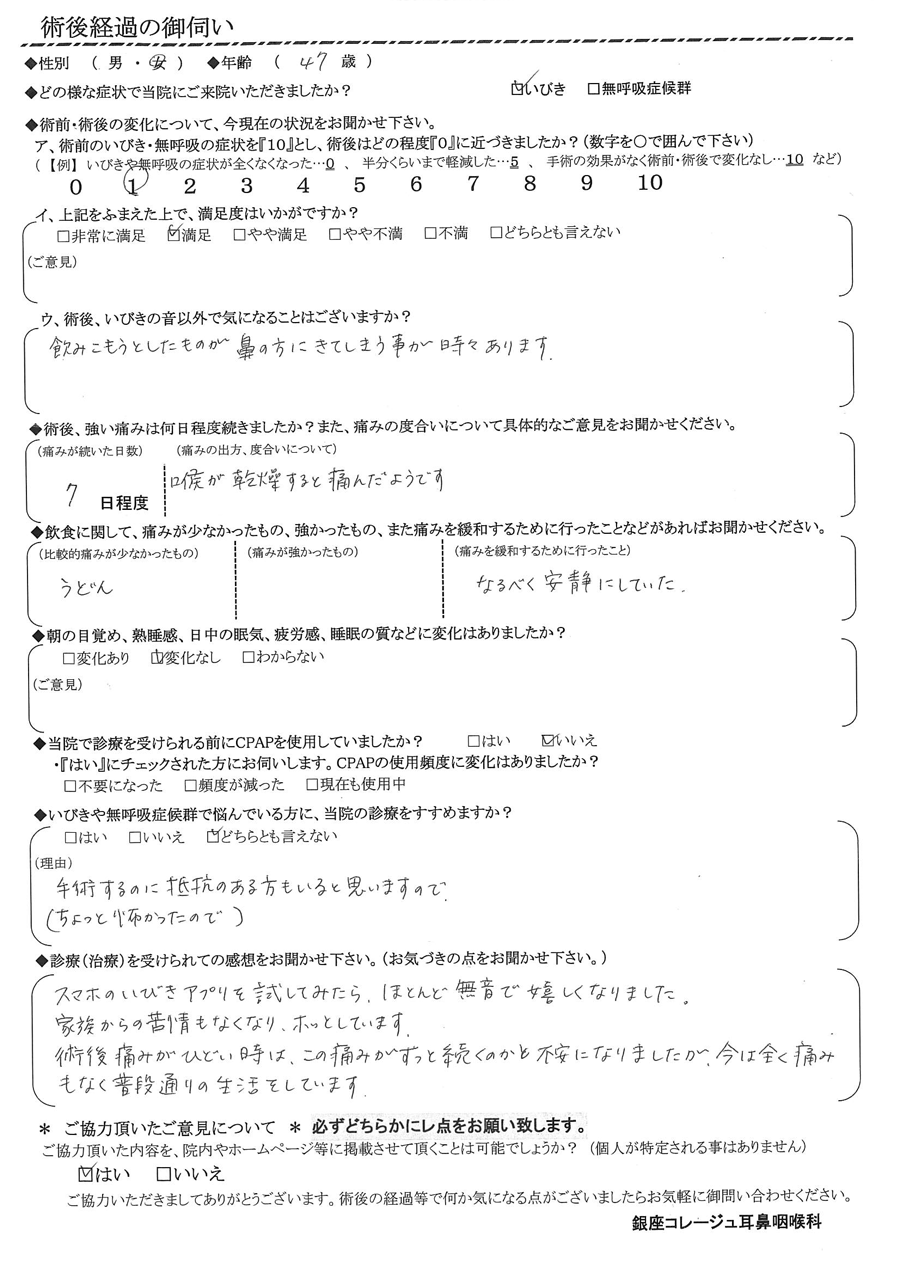 術後経過の御伺い
◆性別 ( 男 ・ 女 ) ◆年齢 ( 47 歳 )
◆どの様な症状で当院にご来院いただきましたか? ☑いびき □無呼吸症候群
◆術前・術後の変化について、今現在の状況をお聞かせ下さい。
ア、術前のいびき・無呼吸の症状を『10』とし、術後はどの程度『0』に近づきましたか?(数字を○で囲んで下さい)
(【例】 いびきや無呼吸の症状が全くなくなった…0 、 半分くらいまで軽減した…5 、 手術の効果がなく術前・術後で変化なし…10 など)
0 1 2 3 4 5 6 7 8 9 10
イ、上記をふまえた上で、満足度はいかがですか?
□非常に満足 ☑満足 □やや満足 □やや不満 □不満 □どちらとも言えない
(ご意見)
ウ、術後、いびきの音以外で気になることはございますか?
飲みこもうとしたものが 鼻の方に きてしまう事が 時々 あります.
◆術後、強い痛みは何日程度続きましたか?また、痛みの度合いについて具体的なご意見をお聞かせください。
(痛みが続いた日数) (痛みの出方、度合いについて)
7 日程度 喉が 乾燥すると 痛んだようです
◆飲食に関して、痛みが少なかったもの、強かったもの、また痛みを緩和するために行ったことなどがあればお聞かせください。
(比較的痛みが少なかったもの) (痛みが強かったもの) (痛みを緩和するために行ったこと)
うどん なるべく 安静にしていた.
◆朝の目覚め、熟睡感、日中の眠気、疲労感、睡眠の質などに変化はありましたか?
□変化あり ☑変化なし □わからない
(ご意見)
◆当院で診療を受けられる前にCPAPを使用していましたか? □はい ☑いいえ
・『はい』にチェックされた方にお伺いします。CPAPの使用頻度に変化はありましたか?
□不要になった □頻度が減った □現在も使用中
◆いびきや無呼吸症候群で悩んでいる方に、当院の診療をすすめますか?
□はい □いいえ ☑どちらとも言えない
(理由)
手術するのに 抵抗のある方もいると思いますので.
(ちょっと怖かったので)
◆診療(治療)を受けられての感想をお聞かせ下さい。(お気づきの点をお聞かせ下さい。)
スマホのいびきアプリを 試してみたら、ほとんど 無音で 嬉しくなりました。
家族からの苦情もなくなり、ホッとしています.
術後 痛みが ひどい 時は、この痛みがずっと続くのかと 不安になりましたが、今は全く痛み
もなく普段通りの生活をしています.
* ご協力頂いたご意見について * 必ずどちらかにレ点をお願い致します。
ご協力頂いた内容を、院内やホームページ等に掲載させて頂くことは可能でしょうか? (個人が特定される事はありません)
☑はい □いいえ
ご協力いただきましてありがとうございます。術後の経過等で何か気になる点がございましたらお気軽に御問い合わせください。
銀座コレージュ耳鼻咽喉科